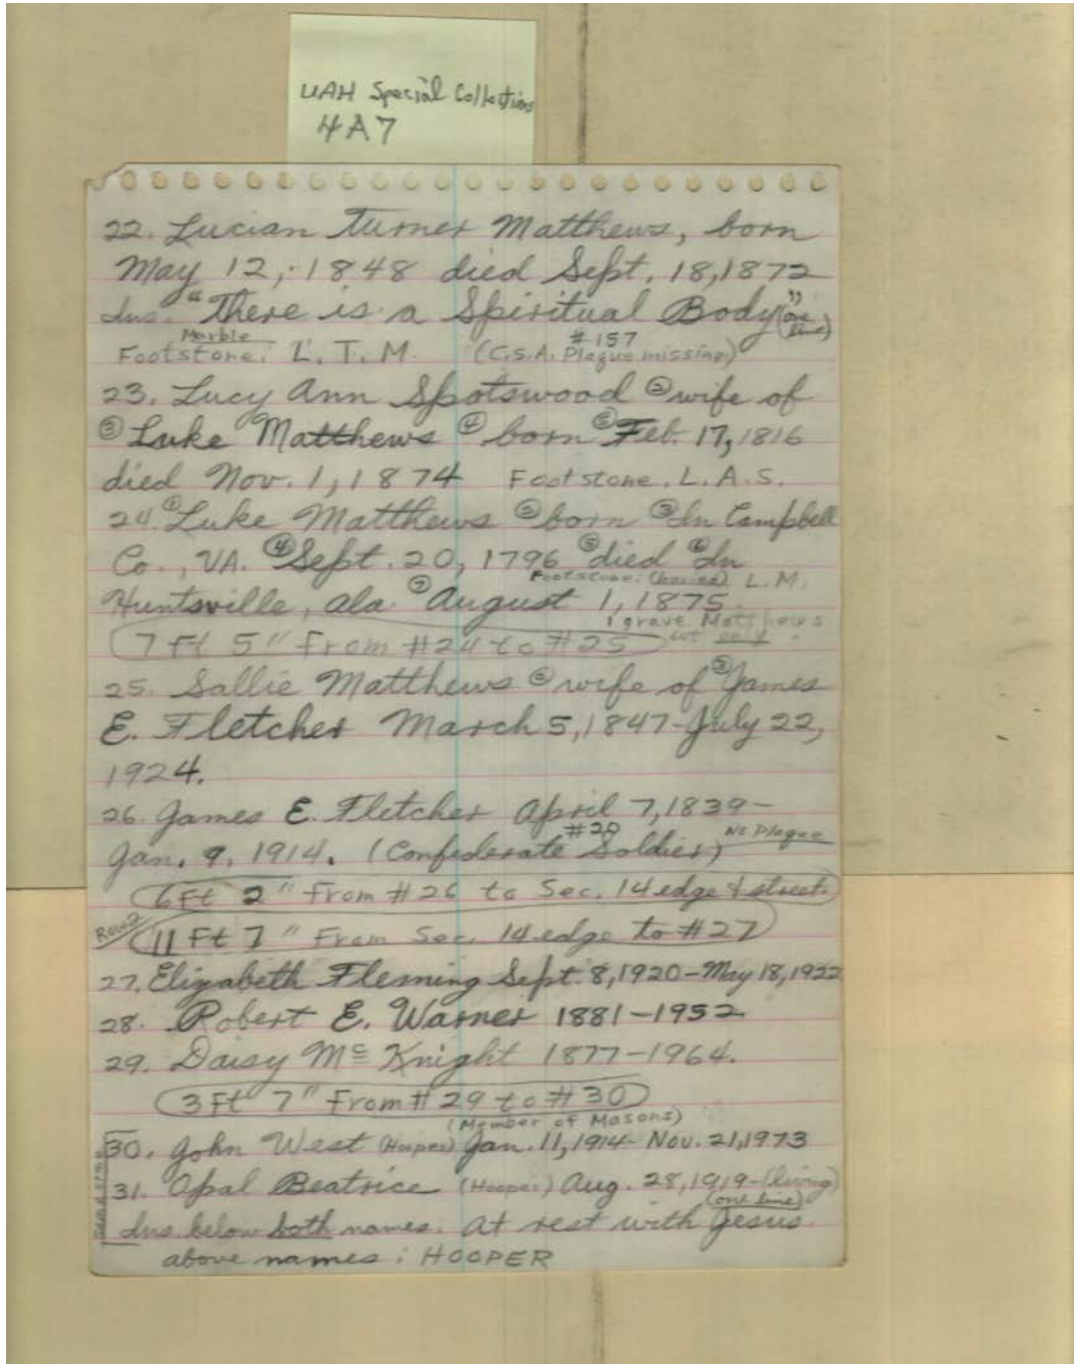 UAH Special Collections
4A7
22. Lucian Turner Matthews, born
May 12, 1848 died Sept. 18, 1872
Ins. "There is a Spiritual Body" (one line)
Marble #157
Footstone: L. T. M. (C.S.A. Plaque missing)
23. Lucy Ann Spotswood ② wife of
③ Luke Matthews ④ born ⑤ Feb. 17, 1816
died Nov. 1, 1874 Footstone. L.A.S.
24. ① Luke Matthews ② born ③ In Campbell
Co., VA. ④ Sept. 20, 1796 ⑤ died ⑥ In
Footstone: (buried) L.M.
Huntsville, Ala. ⑦ August 1, 1875.
1 grave Matthews
7 ft 5" From #24 to #25 lot only.
25. Sallie Matthews ② wife of ③ James
E. Fletcher March 5, 1847-July 22,
1924.
26. James E. Fletcher April 7, 1839-
#20 No Plaque
Jan. 9, 1914. (Confederate Soldier)
6 Ft 2" From #26 to Sec. 14 edge & street
Row 2
11 Ft 7" From Sec. 14 edge to #27
27. Elizabeth Fleming Sept. 8, 1920-May 18, 1922
28. Robert E. Warner 1881-1952
29. Daisy Mc Knight 1877-1964.
3 Ft 7" From # 29 to #30
(Member of Masons)
30. John West (Hooper) Jan. 11, 1914- Nov. 21, 1973
31. Opal Beatrice (Hooper) Aug. 28, 1919-(living)
(one line)
Ins. below both names: At rest with Jesus.
above names: HOOPER